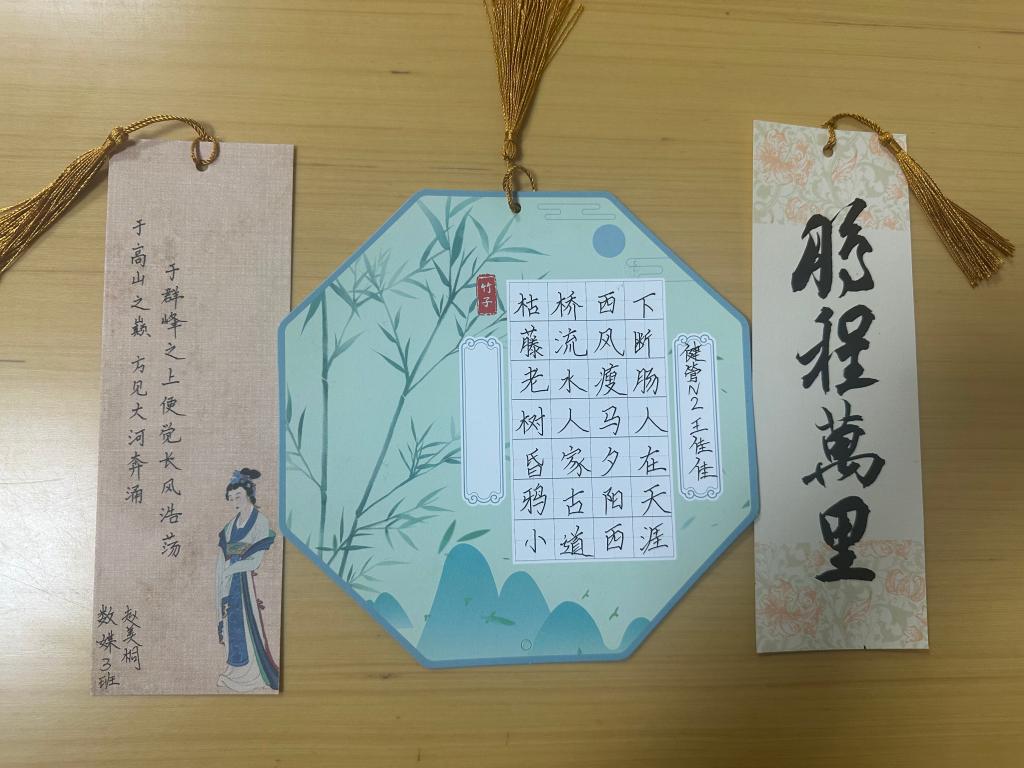 于高山之巅 方见大河奔涌
于群峰之上便觉长风浩荡
数媒3班
赵美桐
竹子
枯藤老树昏鸦小
桥流水人家古道
西风瘦马夕阳西
下断肠人在天涯
健管N2 王佳佳
鹏程萬里